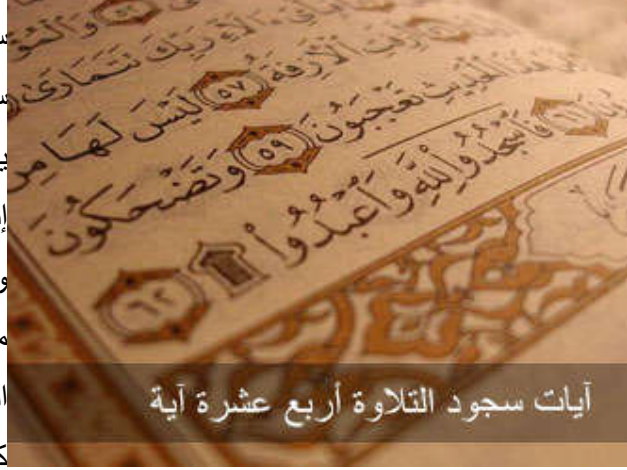 وَالْمُؤْتَ
رَبِّكَ تَتَمَارَىٰ
أَزِفَتِ الْآزِفَةُ ٥٧ لَيْسَ لَهَا مِن
هَٰذَا الْحَدِيثِ تَعْجَبُونَ ٥٩ وَتَضْحَكُونَ
٦١ فَاسْجُدُوا لِلَّهِ وَاعْبُدُوا ۩ ٦٢
آيات سجود التلاوة أربع عشرة آية